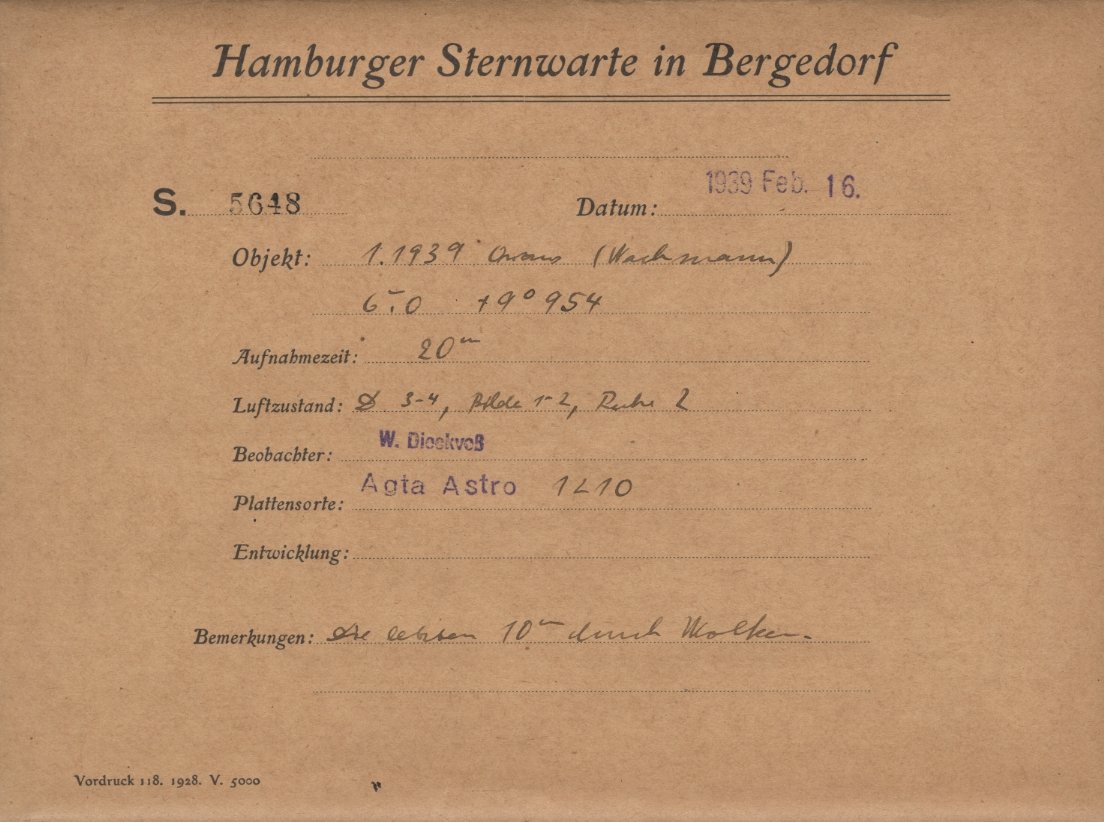 Hamburger Sternwarte in Bergedorf
S. 5648 Datum: 1939 Feb. 16.
Objekt: 1.1939 (Wachmann)
6.0 +9° 954
Aufnahmezeit: 20m
Luftzustand: 3-4, Bilder 1-2, Ruhe 2
Beobachter: W. Dieckvoß
Plattensorte: Agfa Astro 1210
Entwicklung:
Bemerkungen: Die letzten 10m durch Wolken.
Vordruck 118. 1928. V. 5000